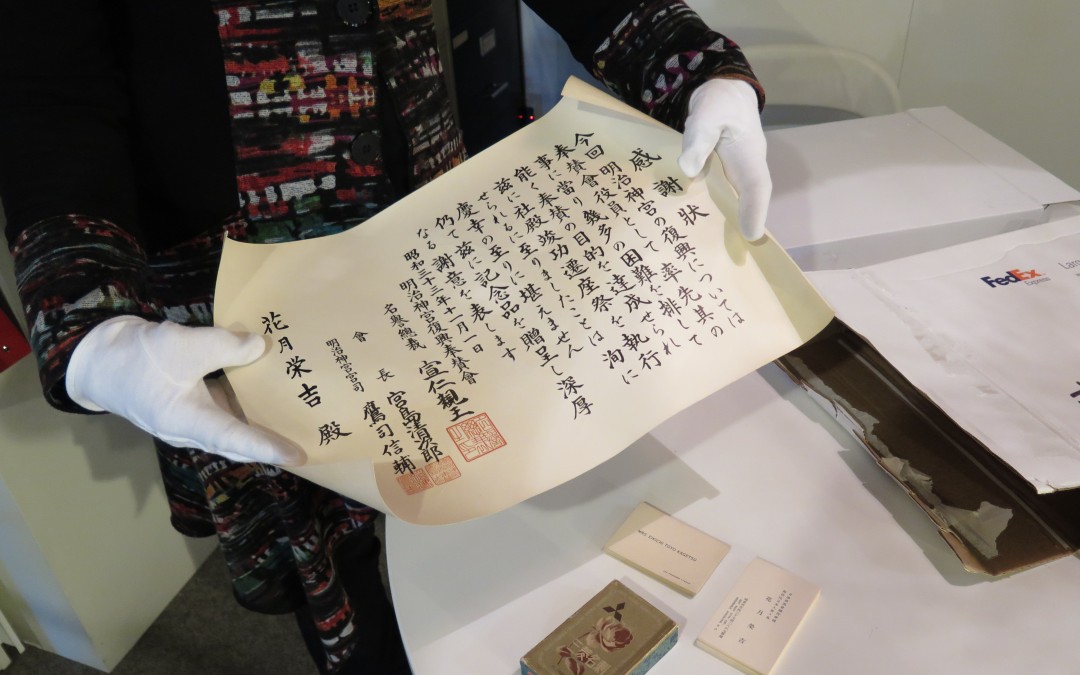 感謝狀
今回明治神宮の復興については
奉賛會役員として率先其の
事に當り幾多の困難を排して
能く奉賛の目的を達成せられ
茲に社殿竣功し遷座祭を執行
せられるに至りましたことは洵に
慶幸の至りに堪えません
仍て茲に記念品を贈呈し深厚
なる謝意を表します
昭和三十三年十一月一日
明治神宮復興奉賛會
名譽總裁 宣仁親王
會長 宮島清次郎
明治神宮宮司 鷹司信輔
花月栄吉 殿
FedEx
Express
MRS. EIICHI TOYO KAGETSU